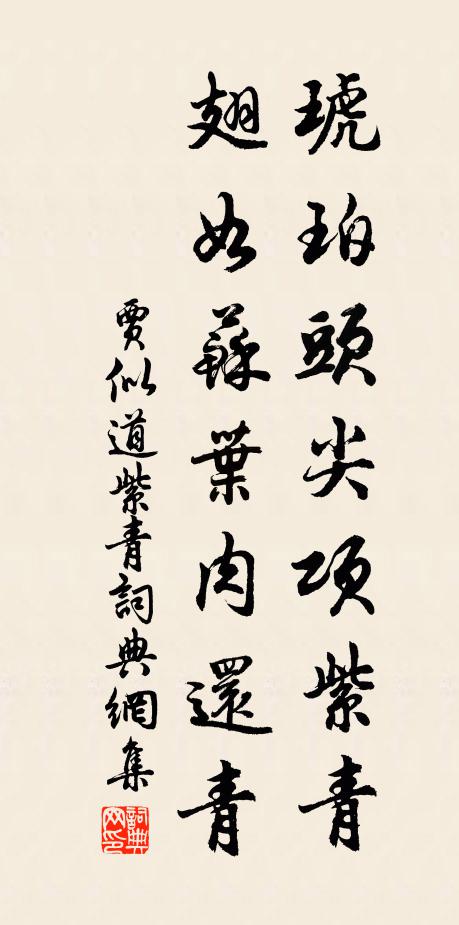 琥珀頭尖項紫青
翅如蘇葉肉還青
賈似道紫青詞典網集
詞典网印